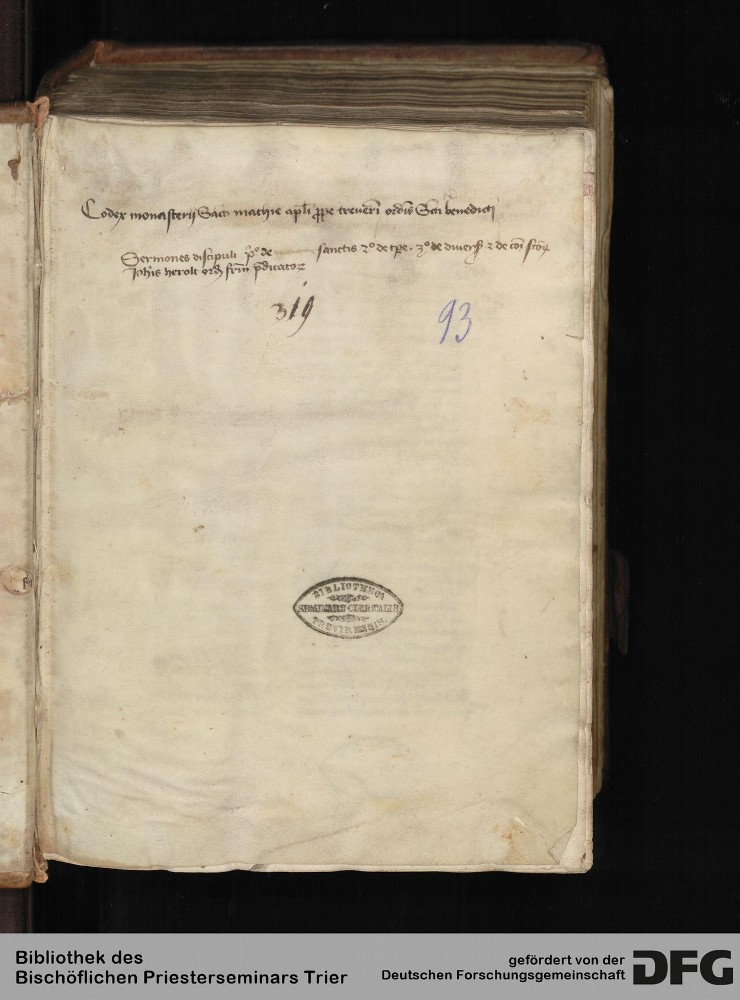 Codex monasterij Scti mathie apli ꝓpe treueri ordis Scti benedicti
Sermones discipuli pº de sanctis 2º de tpe. 3º de diuers 2 de coi scoꝝ
Johis herolt ord frm pdicatoꝝ
319
93
BIBLIOTHECA
SEMINARII CLERICALIS
TREVIRENSIS
Bibliothek des
Bischöflichen Priesterseminars Trier
gefördert von der
Deutschen Forschungsgemeinschaft
DFG